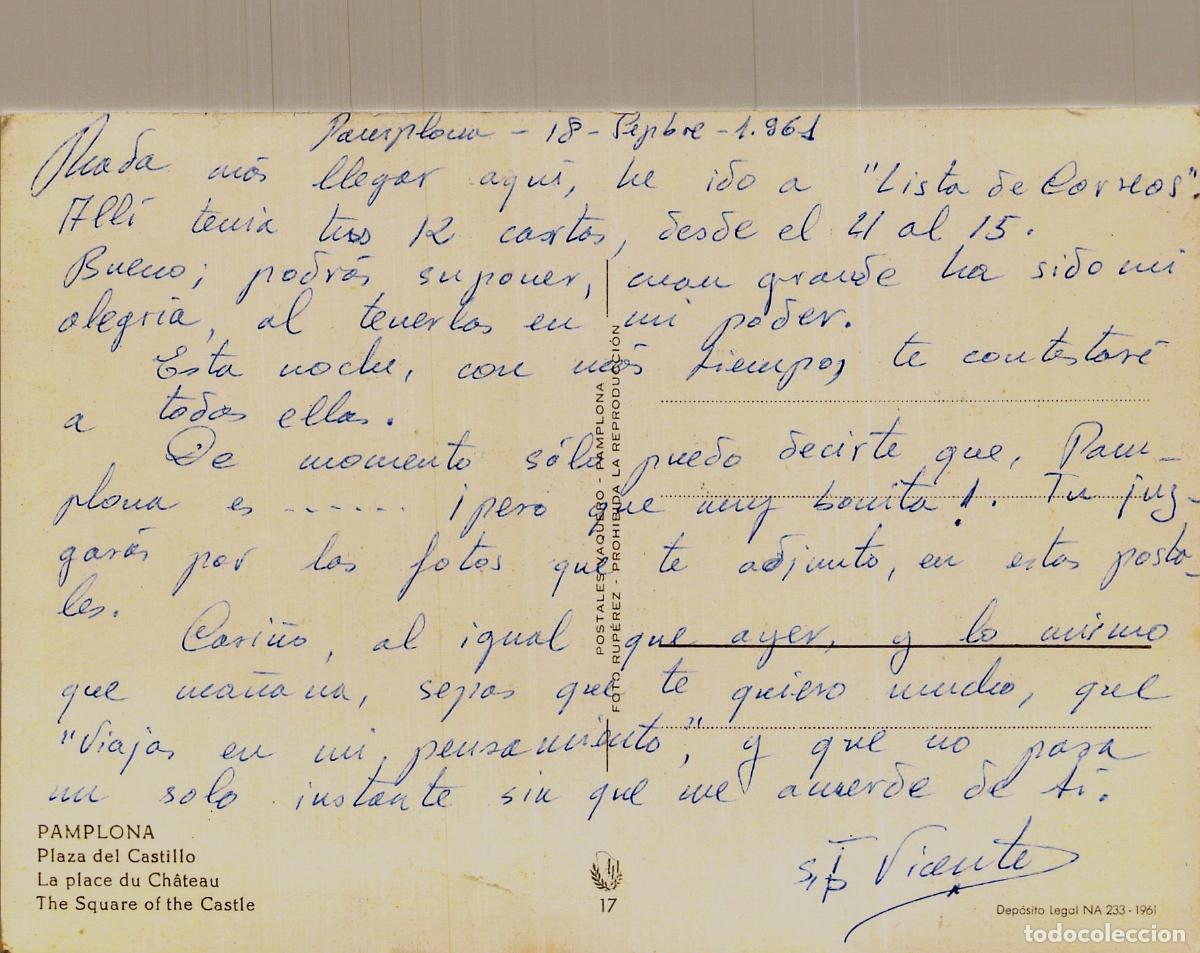 Pamplona - 18 - Sepbre - 1.961
Nada más llegar aquí, he ido a "Lista de Correos".
Allí tenia tus 12 cartas, desde el 4 al 15.
Bueno; podrás suponer, cuan grande ha sido mi
alegria, al tenerlas en mi poder.
Esta noche, con más tiempo, te contestaré
a todas ellas.
De momento sólo puedo decirte que, Pam-
plona es ...... ¡pero que muy bonita!. Tu juz-
garás por las fotos que te adjunto, en estas posta-
les.
Cariño, al igual que ayer, y lo mismo
que mañana, sepas que te quiero mucho, que
"Viajas en mi pensamiento", y que no pasa
un solo instante sin que me acuerde de ti.
Vicente
PAMPLONA
Plaza del Castillo
La place du Château
The Square of the Castle
POSTALES VAQUERO - PAMPLONA
FOTO RUPÉREZ - PROHIBIDA LA REPRODUCCIÓN
17
Depósito Legal NA 233 - 1961
todocoleccion